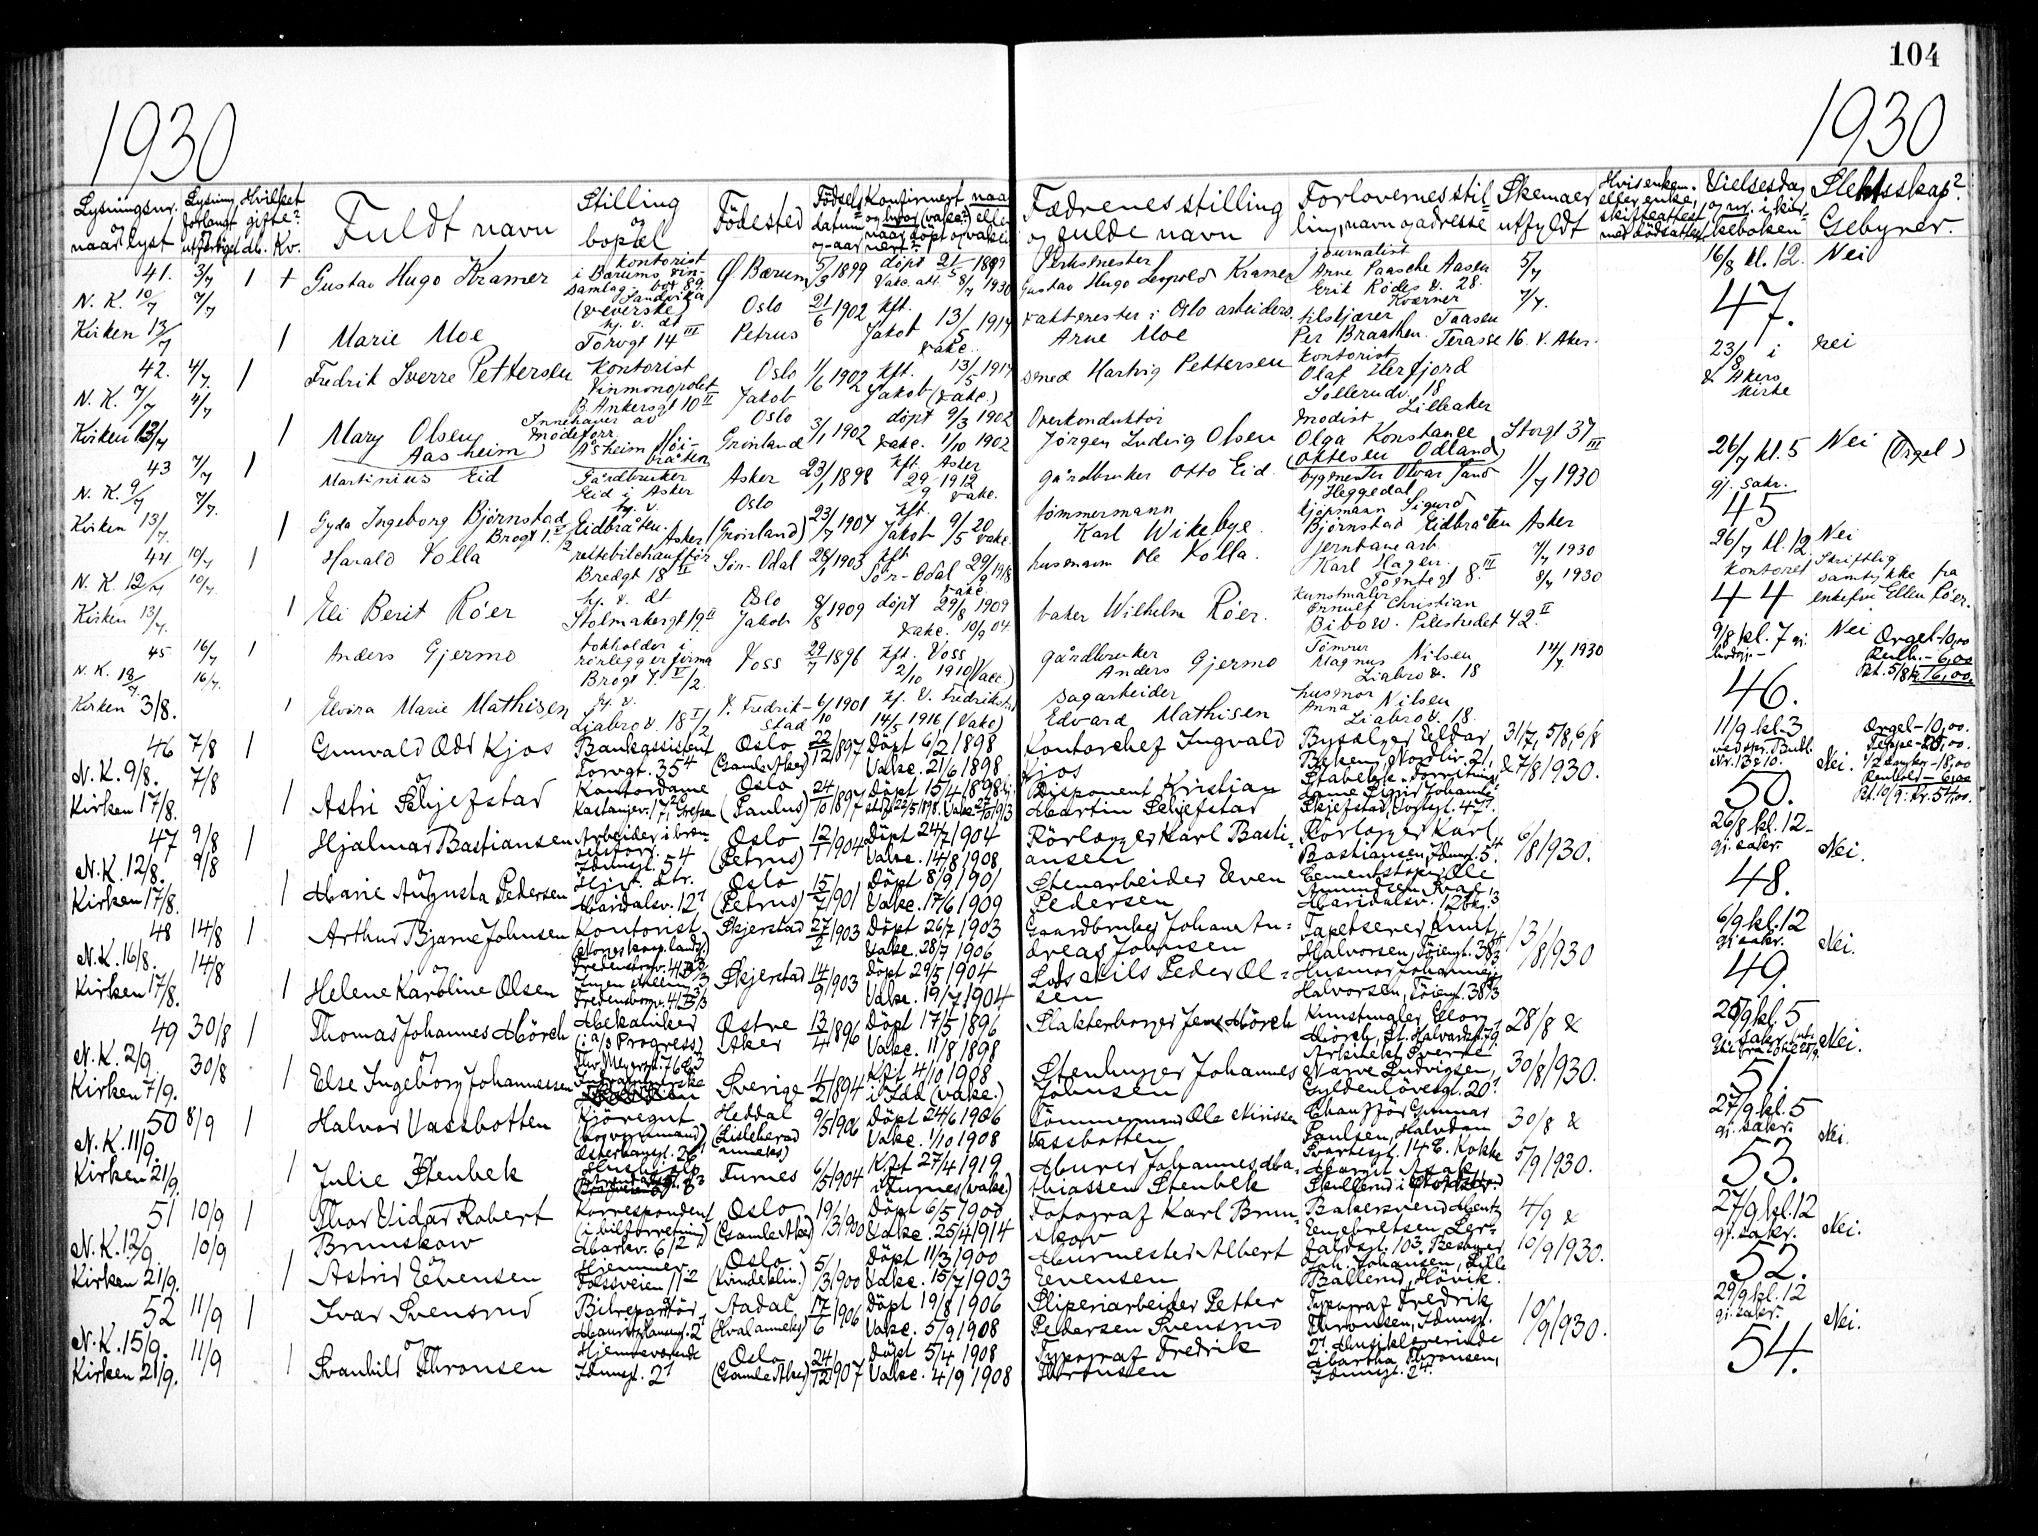 104
1930
1930
Lysningsnr. og naar lyst
Lysning forlangt og utferdiget
Hvilket gifte? Br. Kv.
Fuldt navn
Stilling og bopæl
Födested
Födselsdatum og -aar
Konfirmert, naar og hvor (vake?) eller naar döpt og vaksinert?
Fædrenes stilling og fulde navn
Forlovernes stilling, navn og adresse
Skemaer utfyldt
Hvis enkem. eller enke, skifteattest med dödsattest
Vielsesdag og nr. i kirkeboken
Slektsskap? Gebyrer.
41. 3/7 1 + Gustav Hugo Kramer kontorist i Bærums vinsamlag. box 89. Sandvika Ø. Bærum 5/3 1899 döpt 21/5 1899 Vake. att. 8/7 1930 Verksmester Gustav Hugo Leopold Kramer journalist Arne Paasche Aasen Erik Rødes v. 28. 5/7 16/8 kl. 12. Nei
N. K. 10/7 7/7 47.
Kirken 13/7 1 Marie Moe (veverske) hj. v. dt Torvgt 14 III Oslo Petrus 21/6 1902 kft. Jakob 13/5 1917 vake. vaktmester i Oslo arbeiders. Arne Moe Kværner Per Braathen. Taasen Terasse 16. V. Aker. 7/7.
42. 4/7. 1 Fredrik Sverre Pettersen Kontorist Vinmonopolet B. Ankersgt 10 II Oslo Jakob 1/6 1902 kft. 13/5 1917 Jakob (vake.) smed Hartvig Pettersen kontorist Olaf Herfjord Sollerudv. 18 Lilleaker 23/8 i V. Akers Kirke nei
N. K. 7/7 4/7
Kirken 13/7 1 Mary Olsen Aasheim Innehaver av modeforr. Åsheim Høibråten Oslo Grønland 3/1 1902 döpt 9/3 1902 vake. 1/10 1902 Overkonduktör Jørgen Ludvig Olsen Modist Olga Konstance Oktesen Odland Storgt 37 III
43 7/7 1 Martinius Eid Gårdbruker Eid i Asker Asker 23/1 1898 kft. Asker 29/9 1912 vake. gårdbruker Otto Eid. bygmester Olvar Sand Heggedal 1/7 1930 26/7 kl. 5 gj. sakr. Nei (Orgel)
N. K. 9/7 7/7. 45
Kirken 13/7. 1 Gyda Ingeborg Bjørnstad Brogt 1. II/2 hj. v. Eidbråten. Asker Oslo (Grønland) 23/7 1907 kft. Jakob 9/5 20 vake. tømmermann Karl Wikebye. kjøpmann Sigurd Bjørnstad Eidbråten Asker
44 10/7 1 Harald Volla reisebilchauffør Bredgt 18 II Sør-Odal 28/1 1903 kft. Sør-Odal 29/9 1918 vake. husmann Ole Volla. jernbanearb. Karl Hagen. Tøyengt 8. III 7/7 1930 8/7 1930 26/7 kl. 12 Kontoret Nei
N. K. 12/7 10/7. 44 Skriftlig samtykke fra enkefru Ellen Röer.
Kirken 13/7. 1 Eli Berit Röer hj. v. dt Stolmakergt 19 II Oslo Jakob 8/8 1909 döpt 29/8 1909 vake. 10/9 04. baker Wilhelm Röer. Kunstmaler Arnulf Christian Bibow. Pilestredet 42 II
45 16/7 1 Anders Gjermo bokholder i rörleggerfirma Brogt 7. I/2. Voss 29/7 1896 kft. Voss 2/10 1910 (Vake.) gårdbruker Anders Gjermo Tömrer Magnus Nilsen Ljabrov. 18 14/7 1930 9/8 kl. 7 Nei Orgel-10,00
N. K. 18/7. 16/7. 46. Renh. - 6,00 Bet. 5/8 kr 16,00.
Kirken 3/8. 1 Elvira Marie Mathisen hj. v. Ljabrov. 18 I/2 V. Fredrikstad 6/10 1901 kf. V. Fredrikstad 14/5 1916 (Vake) sagarbeider Edvard Mathisen husmor Anna Nilsen Ljabrov. 18.
46 7/8 1 Gunvald Odd Kjos Bankassistent Torvgt. 35 4 Oslo (Gamle Aker) 22/12 1897 Döpt 6/2 1898 Vake. 21/6 1898 Kontorchef Ingvald Kjos Byselger Reidar 31/7, 5/8, 6/8 & 7/8 1930. 11/9 kl. 3 Nei. Orgel-10,00. Teppe-20,00.
N. K. 9/8. 7/8 50. Renhold - 6,00
Kirken 17/8. 1 Astri Skjefstad Kontordame Kastanjev. 17, Grefsen Oslo (Paulus) 24/10 1897 Döpt 15/4 1898 Disponent Kristian Martin Skjefstad Skjefstad, Torvgt. 47.
47 9/8 1 Hjalmar Bastiansen Arbeider Idunsgt. 5 4 Oslo (Petrus) 12/7 1904 Döpt 24/7 1904 Vake. 14/8 1908 Rörlegger Karl Bastiansen Rörlegger Karl Bastiansen, Idunsgt. 5 4. 6/8 1930. 26/8 kl. 12- gj. sakr. Nei.
N. K. 12/8. 9/8 48.
Kirken 17/8. 1 Marie Augusta Pedersen Hj. v. Str. Maridalsv. 12 1 Oslo (Petrus) 15/7 1901 Döpt 8/9 1901 Vake. 17/6 1909 Stenarbeider Even Pedersen Cementstöper Ole Amundsen Maridalsv. 12
48 14/8 1 Arthur Bjarne Johnsen Kontorist Fredensborgv. 43 Skjerstad 27/2 1903 Döpt 26/7 1903 Vake. 28/7 1906 Gaardbruker Johan Andreas Johnsen Tapetserer Knut Halvorsen, Töiengt. 38 13/8 1930 6/9 kl. 12 gj. sakr. Nei.
N. K. 16/8. 14/8 49.
Kirken 17/8. 1 Helene Karoline Olsen Fredensborgv. 43 Skjerstad 14/9 1903 Döpt 29/5 1904 Vake. 19/7 1904 Los Nils Peder Olsen Husmor Johanne Halvorsen, Töiengt. 38
49 30/8 1 Thomas Johannes Mörch Mekaniker (i a/s Progress) Östre Aker 13/4 1896 Döpt 17/5 1896 Vake. 11/8 1898 Slakterborger Jens Mörch Kunstmaler Georg Mörch, St. Halvardsgt. 79. 28/8 & 30/8 1930. 20/9 kl. 5 Nei.
N. K. 2/9. 30/8 51.
Kirken 7/9. 1 Else Ingeborg Johannessen Sverige 4/2 1894 Kft 4/10 1908 i Idd (vake.) Stenhugger Johannes Johnsen Arkitekt Sverre Narve Ludvigsen, Gyldenlövesgt. 20.
50 8/9 1 Halvor Vassbotten Kjöregut Österhausgt. 26 Heddal (Lisleherad anneks) 9/5 1906 Döpt 24/6 1906 Vake. 1/10 1908 Tömmermand Ole Nirissen Vassbotten Chaufför Gunnar Paulsen, Halvdan Svartesgt. 14 E. 30/8 & 5/9 1930. 27/9 kl. 5 gj. sakr. Nei.
N. K. 11/9. 53.
Kirken 21/9. 1 Julie Stenbek Hushjelp Furnes 6/5 1904 Kft 27/4 1919 i Furnes (vake.) Murer Johannes Mathiassen Stenbek Kokke Margit Aasak
51 10/9 1 Thor Vidar Robert Brunskow Korrespondent (i bilforretning) Markv. 6/2 Oslo (Gamle Aker) 19/3 1900 Döpt 6/5 1900 Vake. 25/4 1914 Fotograf Karl Brunskow Bakersvend Mentz Engebretsen, Herslebsgt. 10 4/9 & 10/9 1930. 27/9 kl. 12 gj. sakr. Nei.
N. K. 12/9 10/9 52.
Kirken 21/9. 1 Astrid Evensen Hjemmev. Fossveien 11 2 Oslo. (Kvindeklin.) 5/3 1900 Döpt 11/3 1900 Vake. 15/7 1903 Murmester Albert Evensen Joh. Johansen, Lille Ballerud, Hövik.
52 11/9 1 Ivar Svensrud Bilreparatör, Maurits Hansensgt. 2 Aadal, (Hval anneks) 17/6 1906 Döpt 19/8 1906 Vake. 5/9 1908 Sliperiarbeider Petter Pedersen Svensrud Typograf Fredrik Thronsen, Idunsgt. 2. 10/9 1930. 29/9 kl. 12 gj. sakr. Nei.
N. K. 15/9. 11/9 54.
Kirken 21/9. 1 Svanhild Thronsen Hjemmeværende Idunsgt. 2 Oslo (Gamle Aker) 24/12 1907 Döpt 5/4 1908 Vake. 4/9 1908 Typograf Fredrik Thronsen Musiklærerinde Martha Thronsen, Idunsgt. 2.